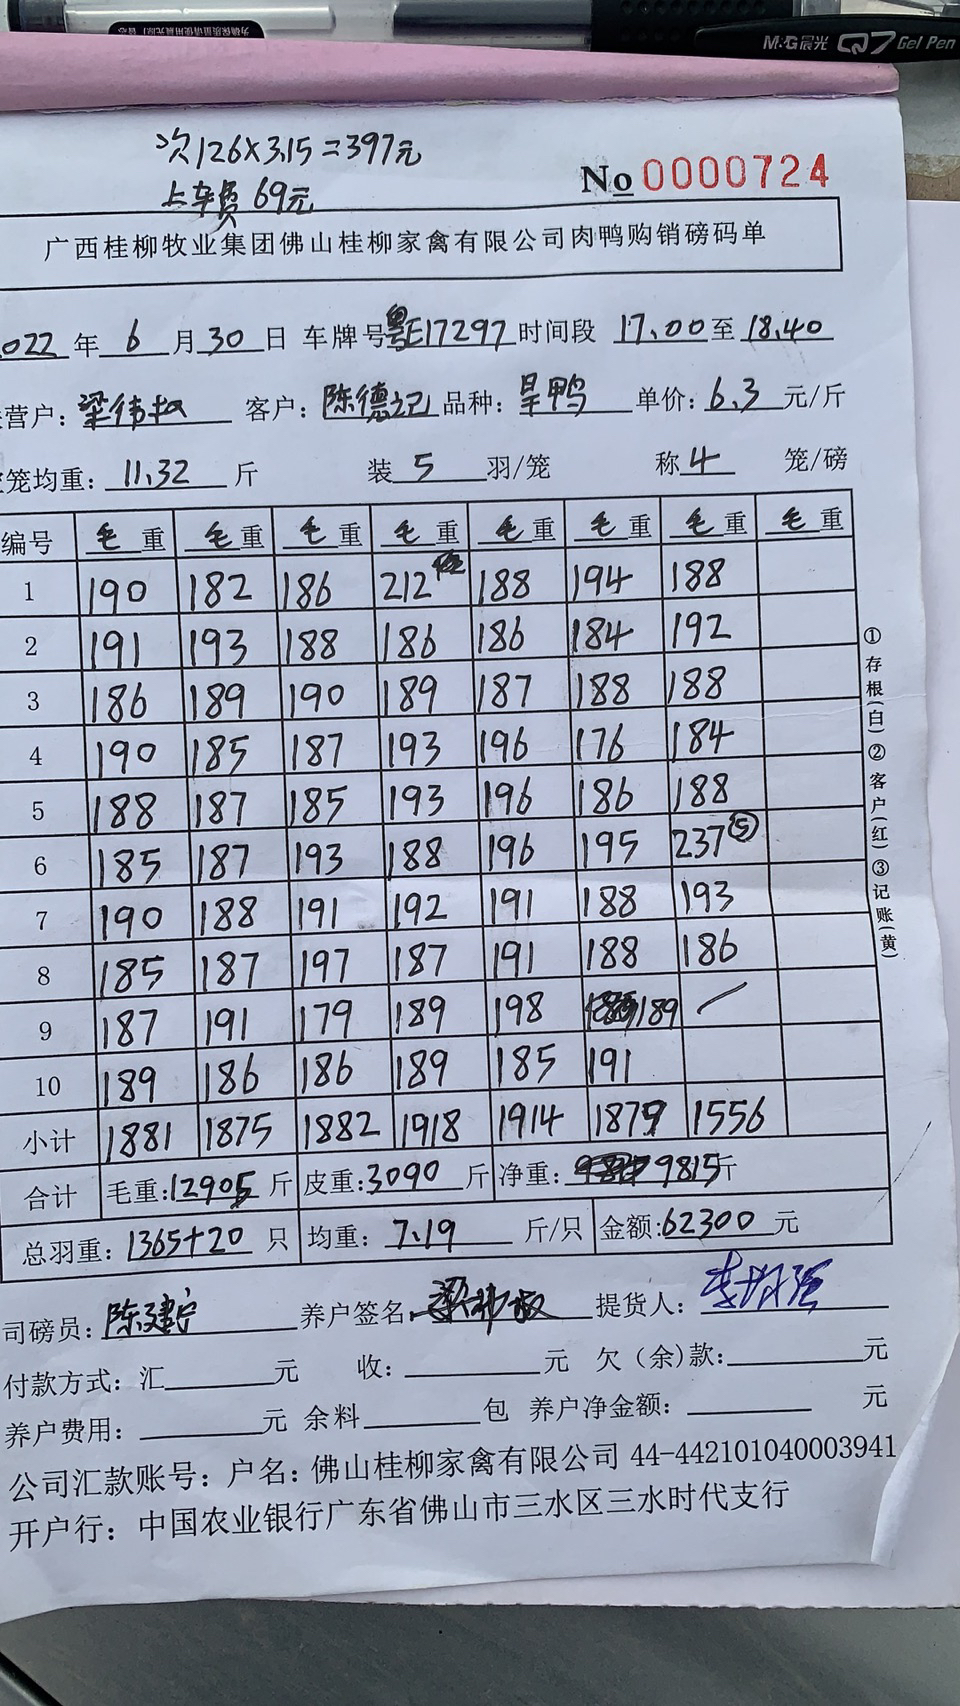 M&G晨光 Q7 Gel Pen
次126×3.15=397元
上车费 69元
No 0000724
广西桂柳牧业集团佛山桂柳家禽有限公司肉鸭购销磅码单
022 年 6 月 30 日 车牌号 粤E17297 时间段 17.00 至 18.40
营户: 梁伟权 客户: 陈德记 品种: 旱鸭 单价: 6.3 元/斤
笼均重: 11.32 斤 装 5 羽/笼 称 4 笼/磅
编号 毛重 毛重 毛重 毛重 毛重 毛重 毛重 毛重
1 190 182 186 212 188 194 188
2 191 193 188 186 186 184 192
3 186 189 190 189 187 188 188
4 190 185 187 193 196 176 184
5 188 187 185 193 196 186 188
6 185 187 193 188 196 195 237⑤
7 190 188 191 192 191 188 193
8 185 187 197 187 191 188 186
9 187 191 179 189 198 189
10 189 186 186 189 185 191
小计 1881 1875 1882 1918 1914 1879 1556
合计 毛重: 12905 斤 皮重: 3090 斤 净重: 9815 斤
总羽重: 1365+20 只 均重: 7.19 斤/只 金额: 62300 元
司磅员: 陈建宁 养户签名 梁伟权 提货人:
付款方式: 汇 元 收: 元 欠(余)款: 元
养户费用: 元 余料 包 养户净金额: 元
公司汇款账号: 户名: 佛山桂柳家禽有限公司 44-442101040003941
开户行: 中国农业银行广东省佛山市三水区三水时代支行
①存根(白)②客户(红)③记账(黄)